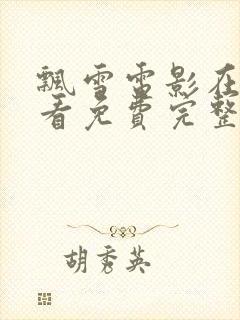 飘雪雷影在
看免费完整
胡秀英